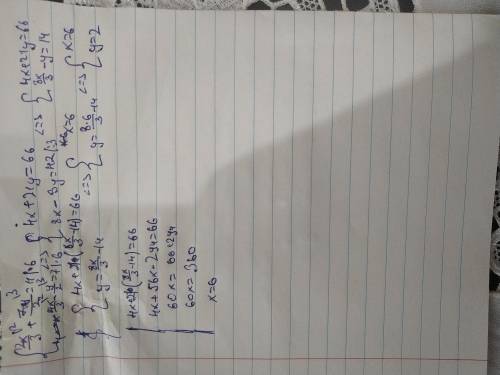 { 2x/3 + 7y/2 = 11 |·6 <=> { 4x+21y=66 <=> { 4x+21y=66
8x-3y=42 |:3
8x/3 - y=14
{ 4x+21(8x/3-14)=66
y=8x/3-14
<=> { x=6
y=8·6/3-14
<=> { x=6
y=2
4x+21(8x/3-14)=66
4x+56x-294=66
60x=66+294
60x=360
x=6